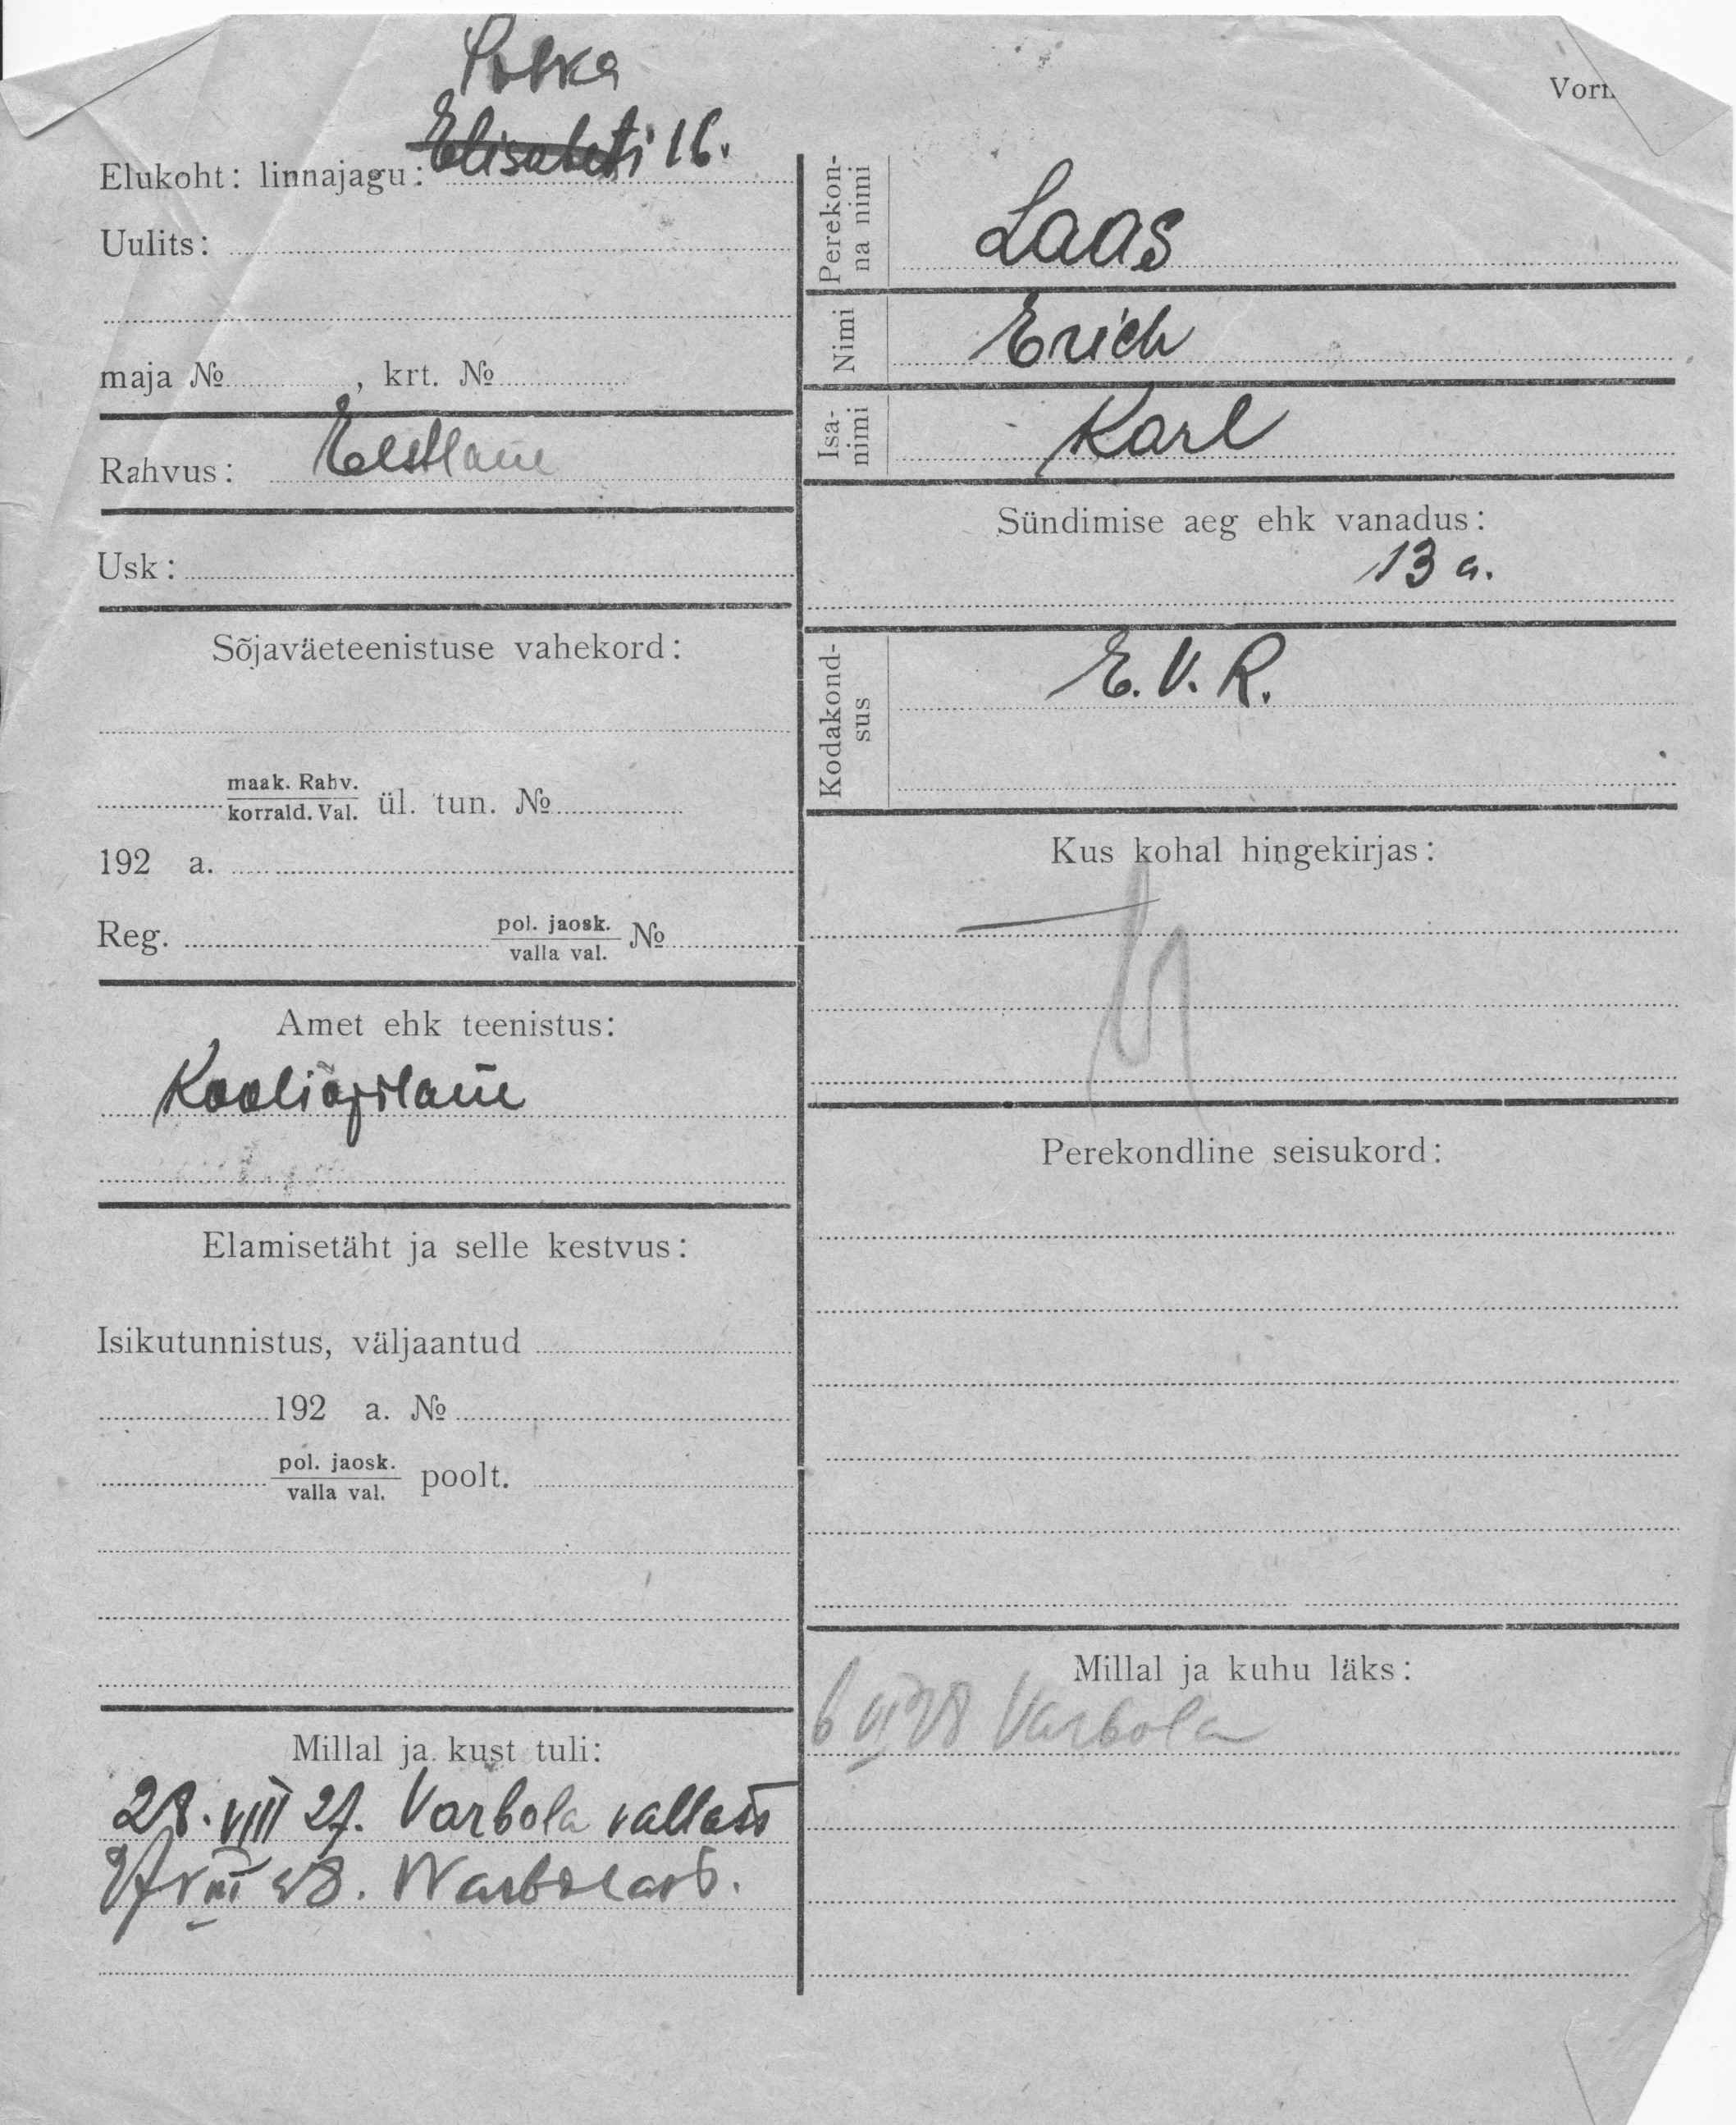 Elisabeti 16.
Elukoht: linnajagu:
Uulits:
maja №, krt. №
Rahvus: Eestlane
Usk:
Sõjaväeteenistuse vahekord:
maak. Rahv.
korrald. Val. ül. tun. №
192 a.
Reg. pol. jaosk.
valla val. №
Amet ehk teenistus:
Kooliõpilane
Elamisetäht ja selle kestvus:
Isikutunnistus, väljaantud
192 a. №
pol. jaosk.
valla val. poolt.
Millal ja kust tuli:
28. VIII 27. Varbola vallast
27 VIII 28. Warbolast.
Perekon-
na nimi
Laas
Nimi
Erich
Isa-
nimi
Karl
Sündimise aeg ehk vanadus:
13 a.
Kodakond-
sus
E. V. R.
Kus kohal hingekirjas:
Perekondline seisukord:
Millal ja kuhu läks:
6 VI 28 Varbola